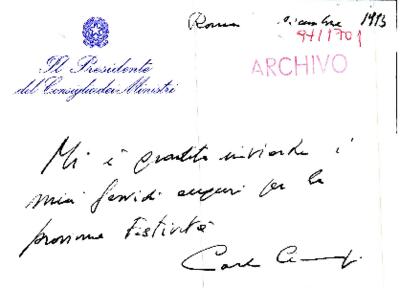 Roma dicembre 1993
94/1701
ARCHIVO
Il Presidente
del Consiglio dei Ministri
Mi è gradito inviarLe i
miei fervidi auguri per le
prossime Festività
Carlo